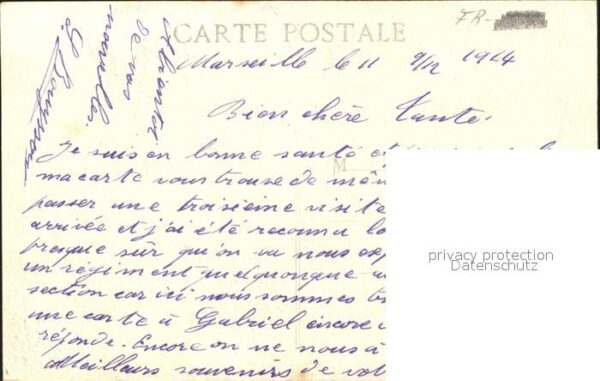 CARTE POSTALE
FR-
Marseille le 11 9/12 1914
Bien chère Tante.
Je suis en bonne santé et
ma carte vous trouve de mêm
passer une troisième visite
arrivée et j'ai été reconnu
presque sûr qu'on va nous
un régiment quelquonque
section car ici nous sommes
une carte à Gabriel encore
réponde. Encore on ne nous a
Meilleurs souvenirs de vot
A bientôt
de vos
nouvelles.
privacy protection
Datenschutz